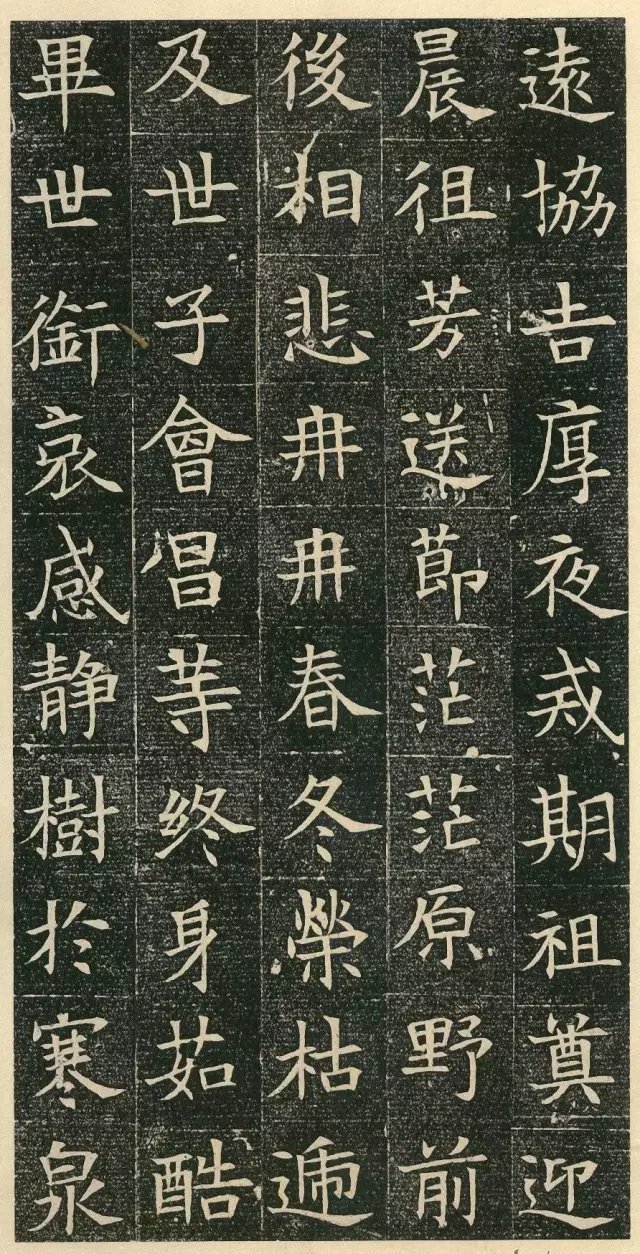 遠協吉厚夜戒期祖奠迎
晨徂芳送節茫茫原野前
後相悲冉冉春冬榮枯遞
及世子會昌等終身茹酷
畢世銜哀感靜樹於寒泉